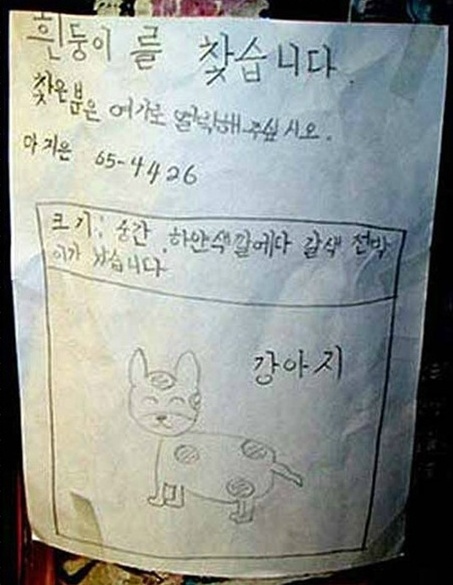 흰둥이를 찾습니다.
찾은분은 여기로 연락해 주십시오.
마지은 65-4426
크기: 중간, 하얀색깔에다 갈색 점박
이가 있습니다
강아지